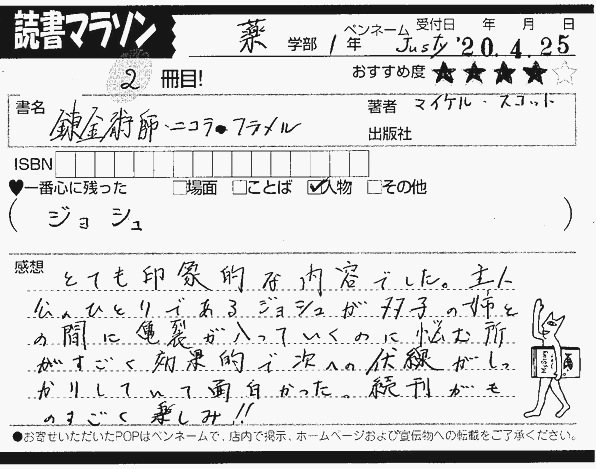 読書マラソン
薬 学部 1 年 ペンネーム Justy 受付日 年 月 日 '20.4.25
2 冊目! おすすめ度 ★★★★☆
書名 錬金術師・ニコラ・フラメル 著者 マイケル・スコット
出版社
ISBN
♥一番心に残った □場面 □ことば ☑人物 □その他
( ジョシュ )
感想 とても印象的な内容でした。主人
公のひとりであるジョシュが双子の姉と
の間に亀裂が入っていくのに悩む所
がすごく効果的で次への伏線がしっ
かりしていて面白かった。続刊がも
のすごく楽しみ!!
●お寄せいただいたPOPはペンネームで、店内で掲示、ホームページおよび宣伝物への転載をご了承ください。